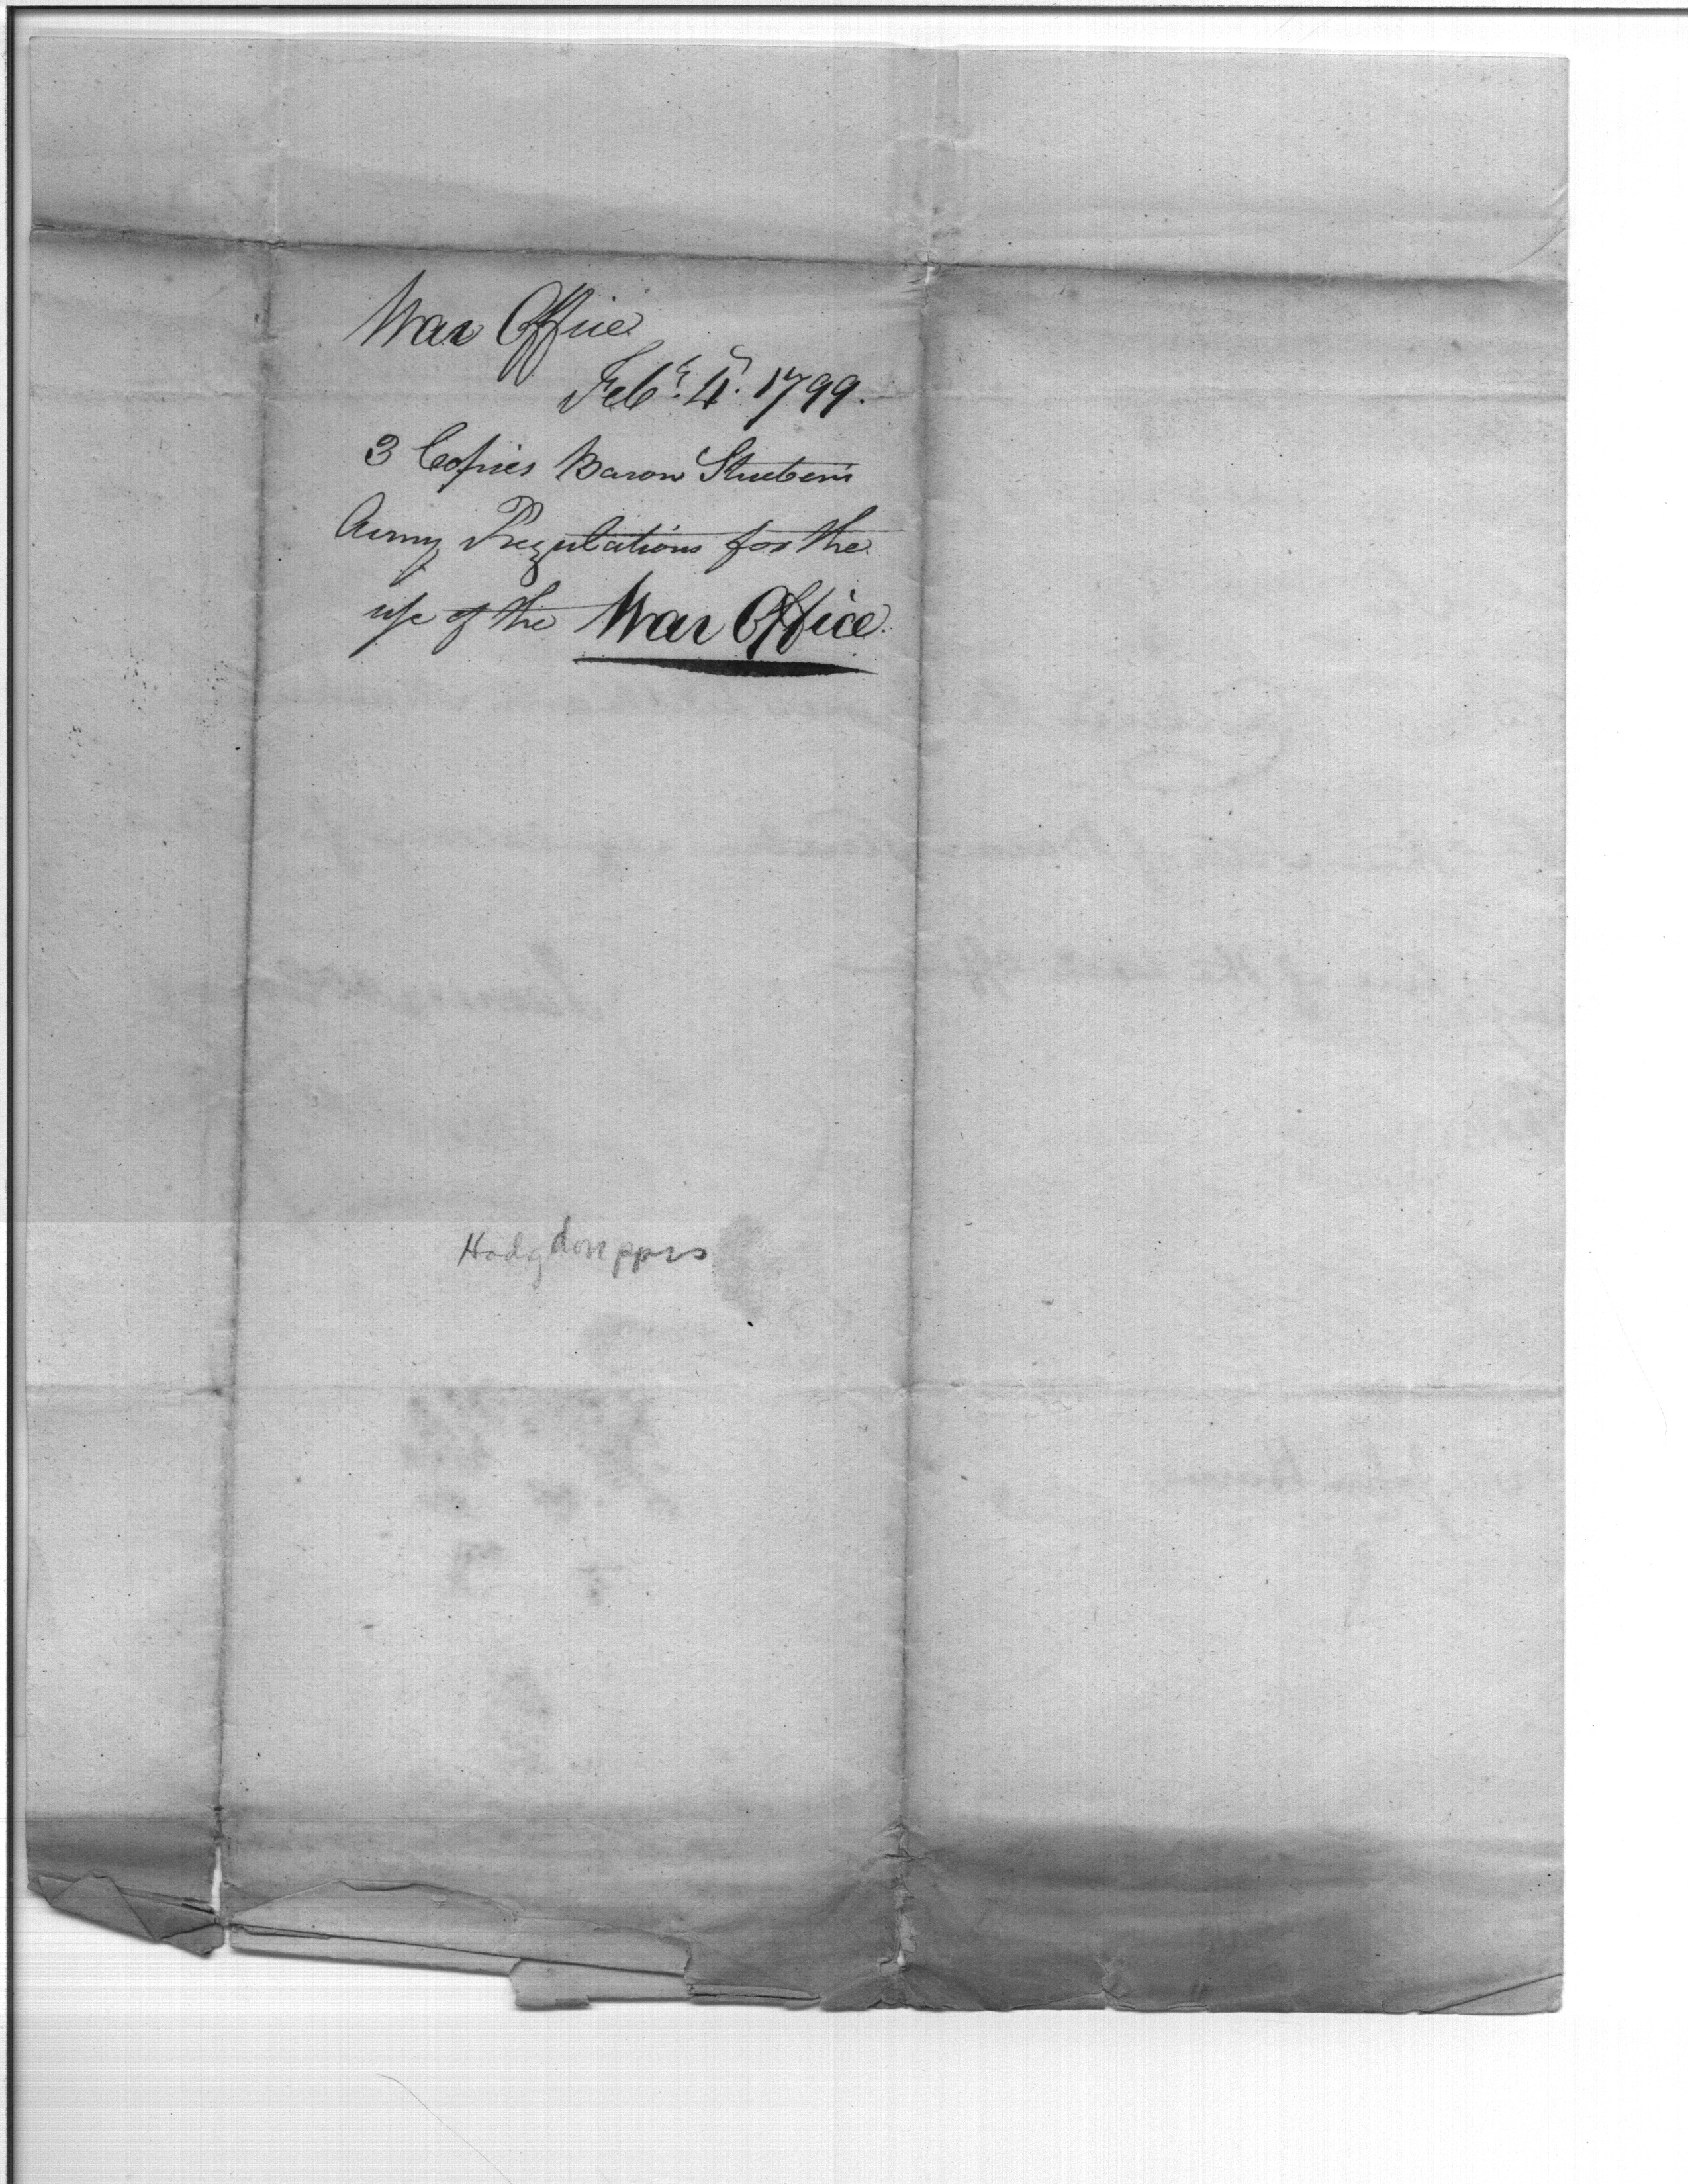 War Office
Feby. 4. 1799.
3 Copies Baron Stueben's
Army Regulations for the
use of the War Office.
Hodgdon pprs